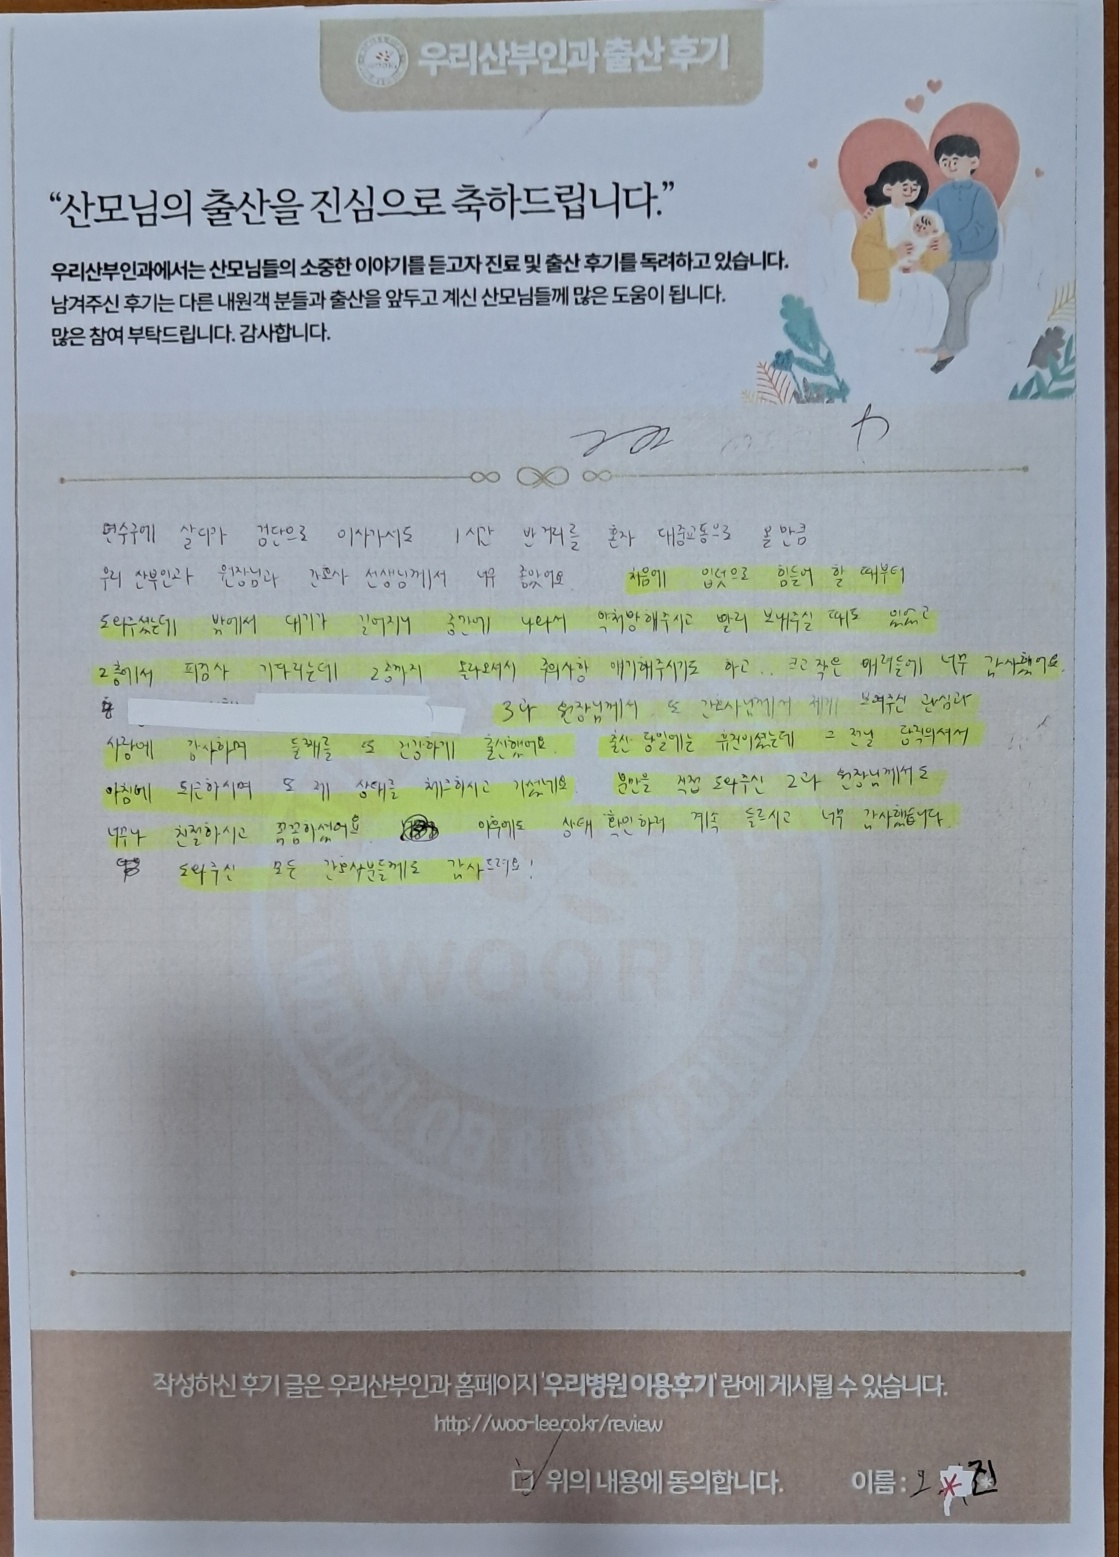 우리산부인과 출산 후기
“산모님의 출산을 진심으로 축하드립니다.”
우리산부인과에서는 산모님들의 소중한 이야기를 듣고자 진료 및 출산 후기를 독려하고 있습니다.
남겨주신 후기는 다른 내원객 분들과 출산을 앞두고 계신 산모님들께 많은 도움이 됩니다.
많은 참여 부탁드립니다. 감사합니다.
연수구에 살다가 검단으로 이사가서도 1시간 반거리를 혼자 대중교통으로 올만큼
우리 산부인과 원장님과 간호사 선생님께서 너무 좋았어요 처음에 입덧으로 힘들어 할 때부터
도와주셨는데 밖에서 대기가 길어지니 중간에 나와서 약처방해주시고 빨리 보내주실 때도 있었고
2층에서 피검사 기다리는데 2층까지 올라오셔서 주의사항 얘기해주시기도 하고.. 크고 작은 배려들에 너무 감사했어요.
3과 원장님께서 또 간호사님께서 제게 보여주신 관심과
사랑에 감사하며 둘째를 또 건강하게 출산했어요. 출산 당일에는 휴진이셨는데 그 전날 당직의셔서
아침에 퇴근하시며 또 제 상태를 체크하시고 가셨네요 분만을 직접 도와주신 2과 원장님께서도
너무나 친절하시고 꼼꼼하셨어요 이후에도 상태 확인하러 계속 들르시고 너무 감사했습니다
도와주신 모든 간호사분들께도 감사드려요!
WOORI
WOORI OB & GYN CLINIC
작성하신 후기 글은 우리산부인과 홈페이지 '우리병원 이용후기' 란에 게시될 수 있습니다.
http://woo-lee.co.kr/review
위의 내용에 동의합니다. 이름 : 오*진